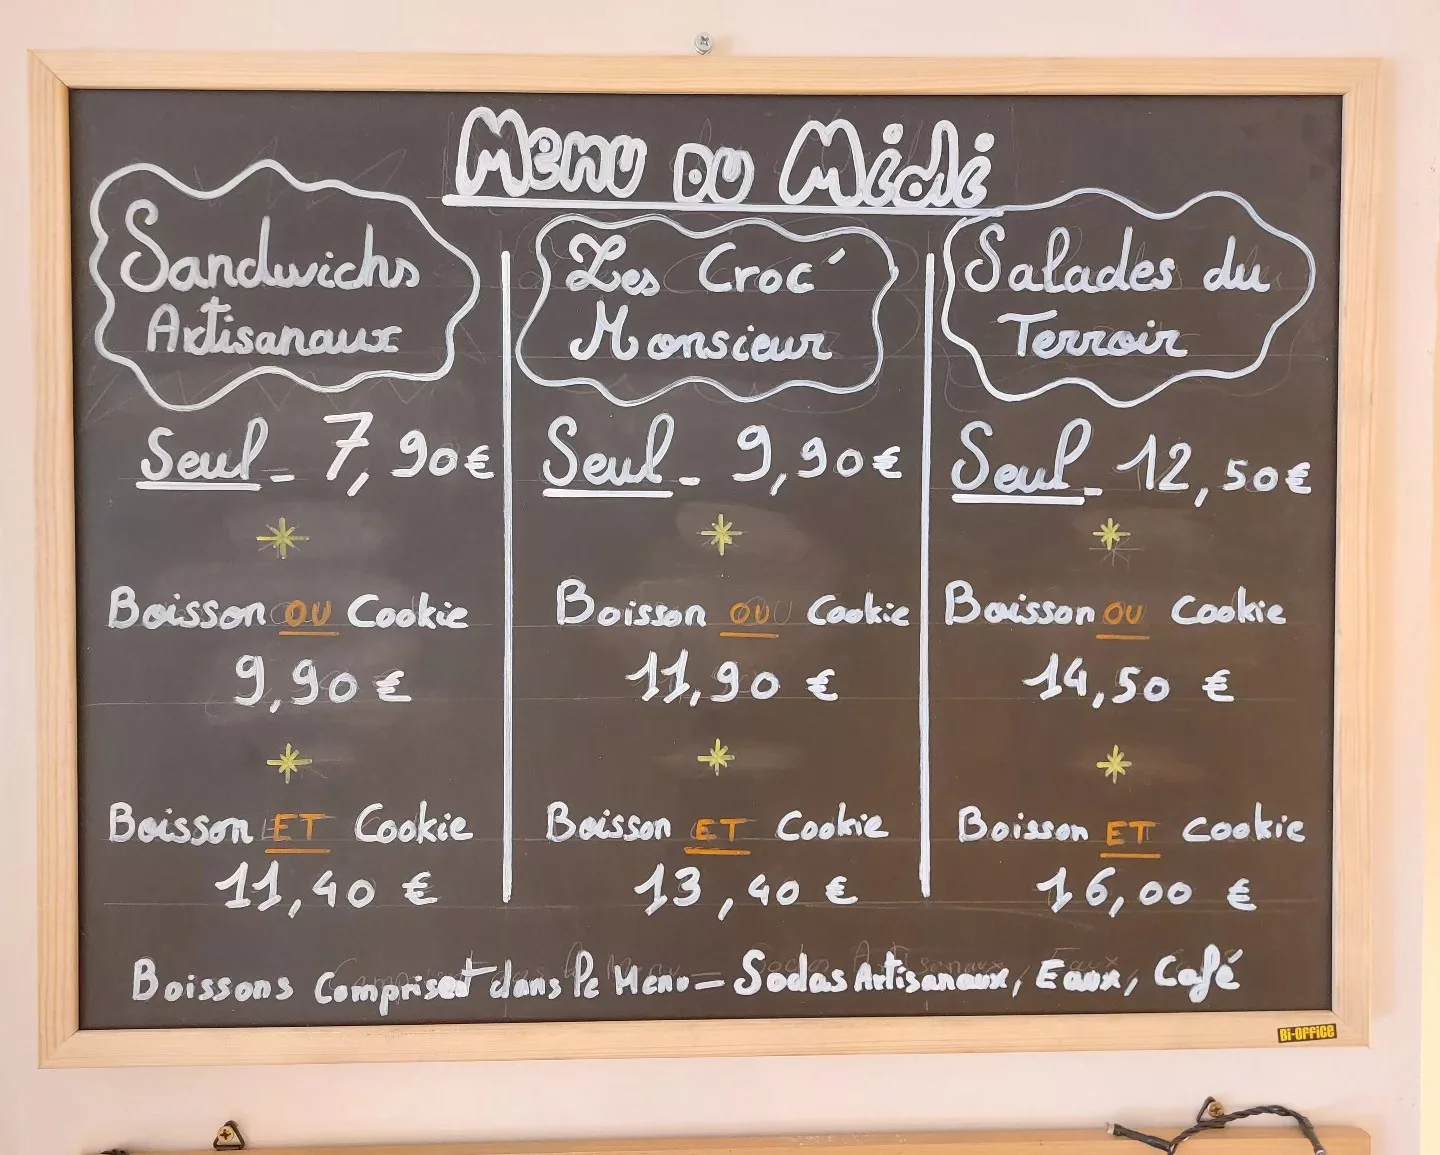 Menu du Midi
Sandwichs
Artisanaux
Seul - 7,90€
Boisson OU Cookie
9,90 €
Boisson ET Cookie
11,40 €
Les Croc'
Monsieur
Seul - 9,90€
Boisson OU Cookie
11,90 €
Boisson ET Cookie
13,40 €
Salades du
Terroir
Seul - 12,50€
Boisson OU Cookie
14,50 €
Boisson ET Cookie
16,00 €
Boissons comprisent dans le Menu = Sodas Artisanaux, Eaux, Café
Bi-OFFICE